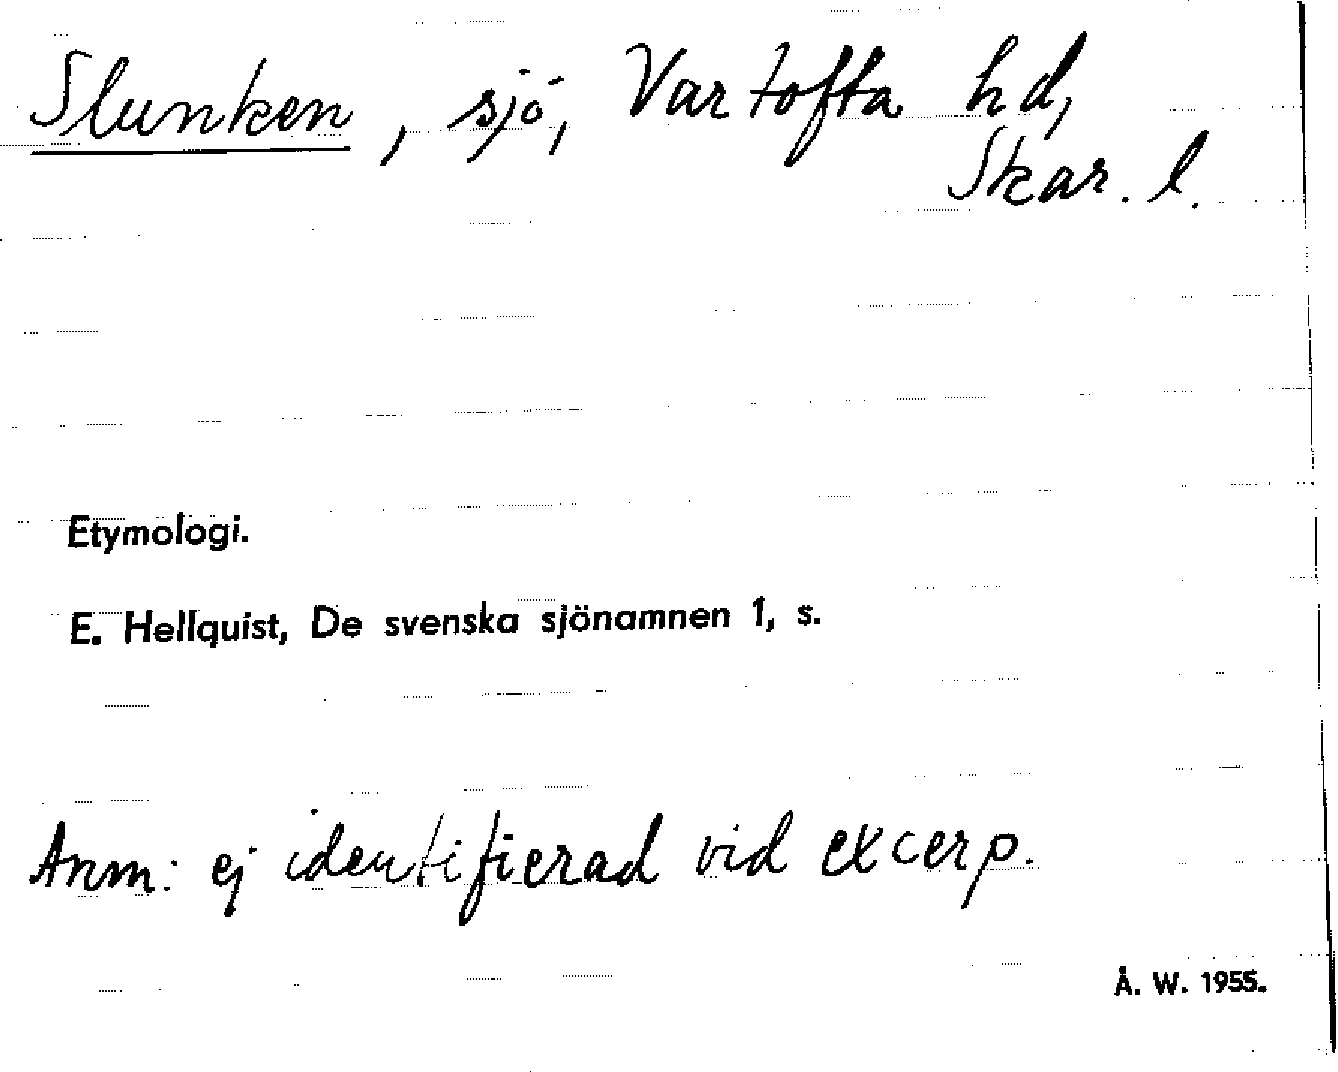 Slunken, sjö, Vartofta hd,
Skar. l.
Etymologi.
E. Hellquist, De svenska sjönamnen 1, s.
Anm: ej identifierad vid excerp.
Å. W. 1955.